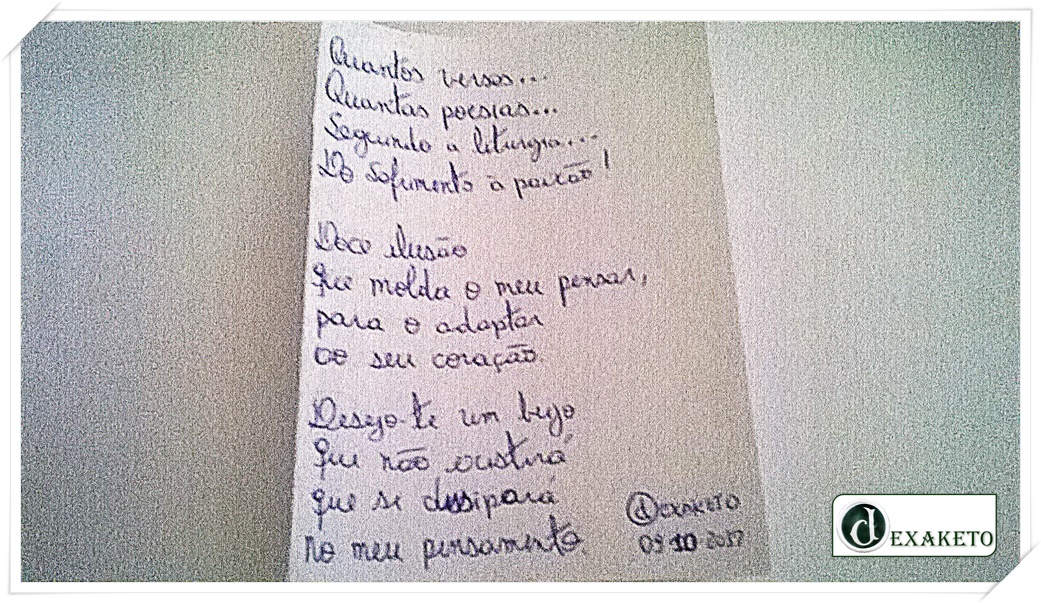 Quantos versos...
Quantas poesias...
Segundo a liturgia...
Do Sofrimento à paixão!
Doce ilusão
Que molda o meu pensar,
para o adaptar
ao seu coração.
Desejo-te um beijo
Que não existirá
que se dissipará
no meu pensamento.
@DEXAKETO
09-10-2017
dEXAKETO